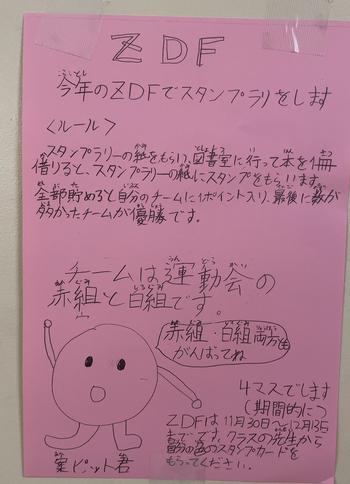 ZDF
今年のZDFでスタンプラリをします
<ルール>
スタンプラリーの紙をもらい、図書室に行って本を1冊
借りると、スタンプラリーの紙にスタンプをもらいます。
全部貯めると自分のチームに1ポイント入り、最後に数が
多かったチームが優勝です。
チームは運動会の
赤組と白組です。
赤組・白組両方とも
がんばってね
4マスでします
(期間的に)
ZDFは11月30日〜12月13日
までです。クラスの先生から
自分の色のスタンプカードを
もらってください。
ピット君